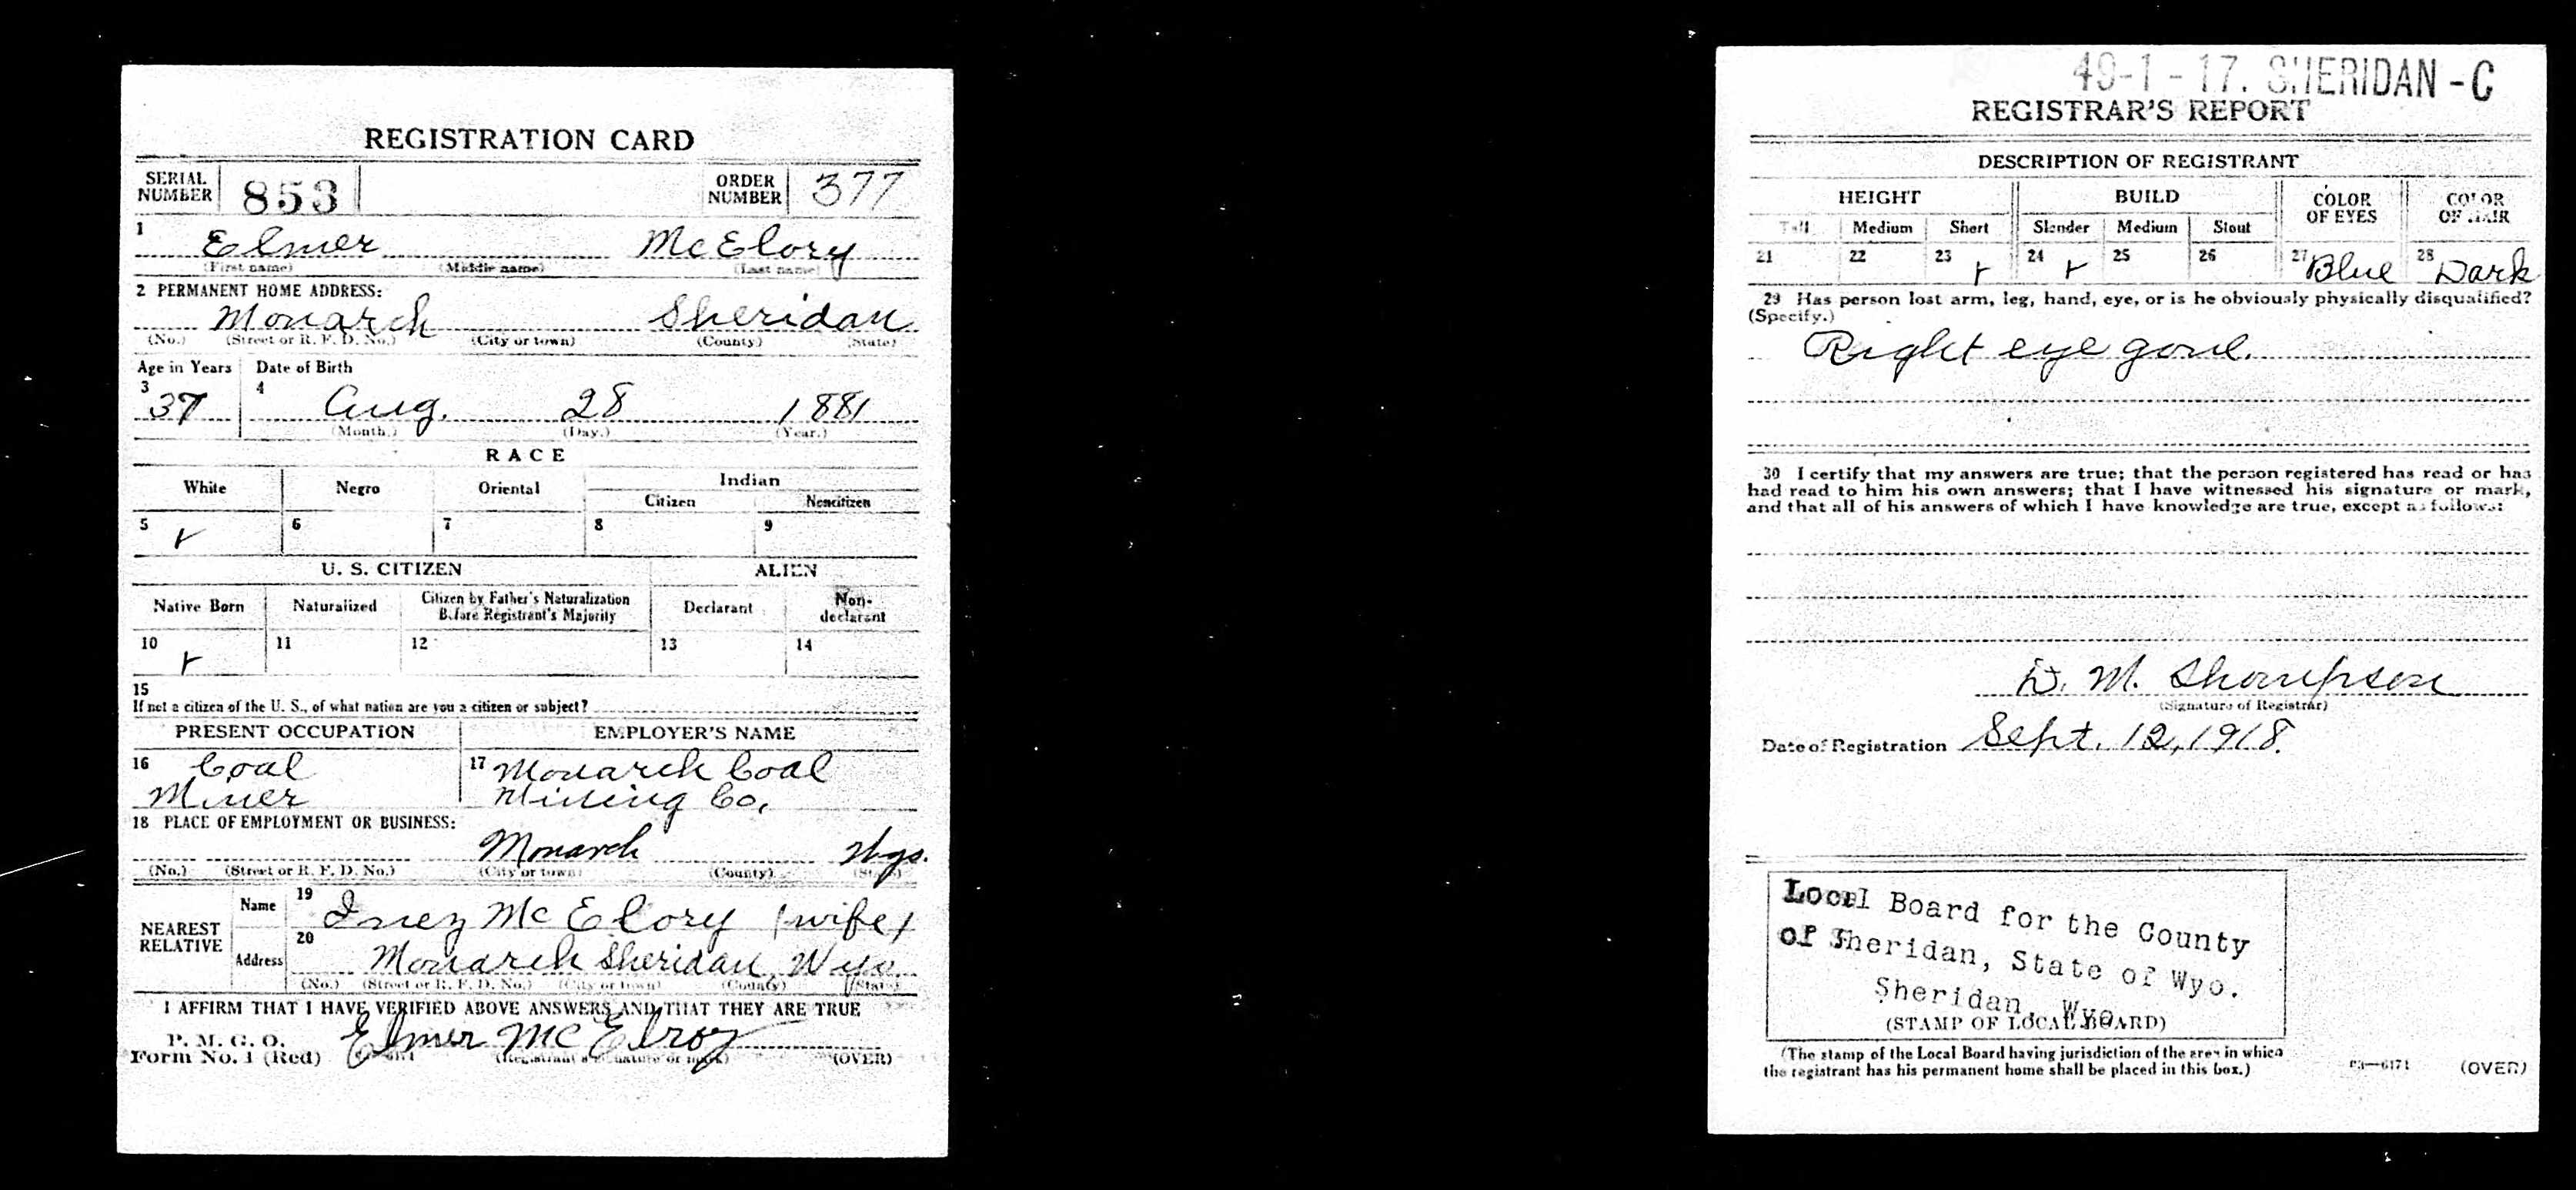 REGISTRATION CARD
SERIAL NUMBER 853 ORDER NUMBER 377
1 Elmer McElory
(First name) (Middle name) (Last name)
2 PERMANENT HOME ADDRESS:
Monarch Sheridan
(No.) (Street or R. F. D. No.) (City or town) (County) (State)
Age in Years Date of Birth
3 37 4 Aug. 28 1881
(Month.) (Day.) (Year.)
RACE
White Negro Oriental Indian
Citizen Noncitizen
5 6 7 8 9
U. S. CITIZEN ALIEN
Native Born Naturalized Citizen by Father's Naturalization Before Registrant's Majority Declarant Non-declarant
10 11 12 13 14
15
If not a citizen of the U. S., of what nation are you a citizen or subject?
PRESENT OCCUPATION EMPLOYER'S NAME
16 Coal 17 Monarch Coal
Miner Mining Co.
18 PLACE OF EMPLOYMENT OR BUSINESS:
Monarch Wyo.
(No.) (Street or R. F. D. No.) (City or town) (County) (State)
NEAREST RELATIVE
Name 19 Inez McElory (wife)
Address 20 Monarch Sheridan, Wyo.
(No.) (Street or R. F. D. No.) (City or town) (County) (State)
I AFFIRM THAT I HAVE VERIFIED ABOVE ANSWERS AND THAT THEY ARE TRUE
P. M. G. O.
Form No. 1 (Red) Elmer McElroy (OVER)
(Registrant's signature or mark)
49-1-17. SHERIDAN-C
REGISTRAR'S REPORT
DESCRIPTION OF REGISTRANT
HEIGHT BUILD COLOR OF EYES COLOR OF HAIR
Tall Medium Short Slender Medium Stout
21 22 23 24 25 26 27 Blue 28 Dark
29 Has person lost arm, leg, hand, eye, or is he obviously physically disqualified?
(Specify.)
Right eye gone.
30 I certify that my answers are true; that the person registered has read or has
had read to him his own answers; that I have witnessed his signature or mark,
and that all of his answers of which I have knowledge are true, except as follows:
D. M. Thompson
(Signature of Registrar)
Date of Registration Sept. 12, 1918.
Local Board for the County
of Sheridan, State of Wyo.
Sheridan, Wyo.
(STAMP OF LOCAL BOARD)
(The stamp of the Local Board having jurisdiction of the area in which
the registrant has his permanent home shall be placed in this box.)
03—6171 (OVER)